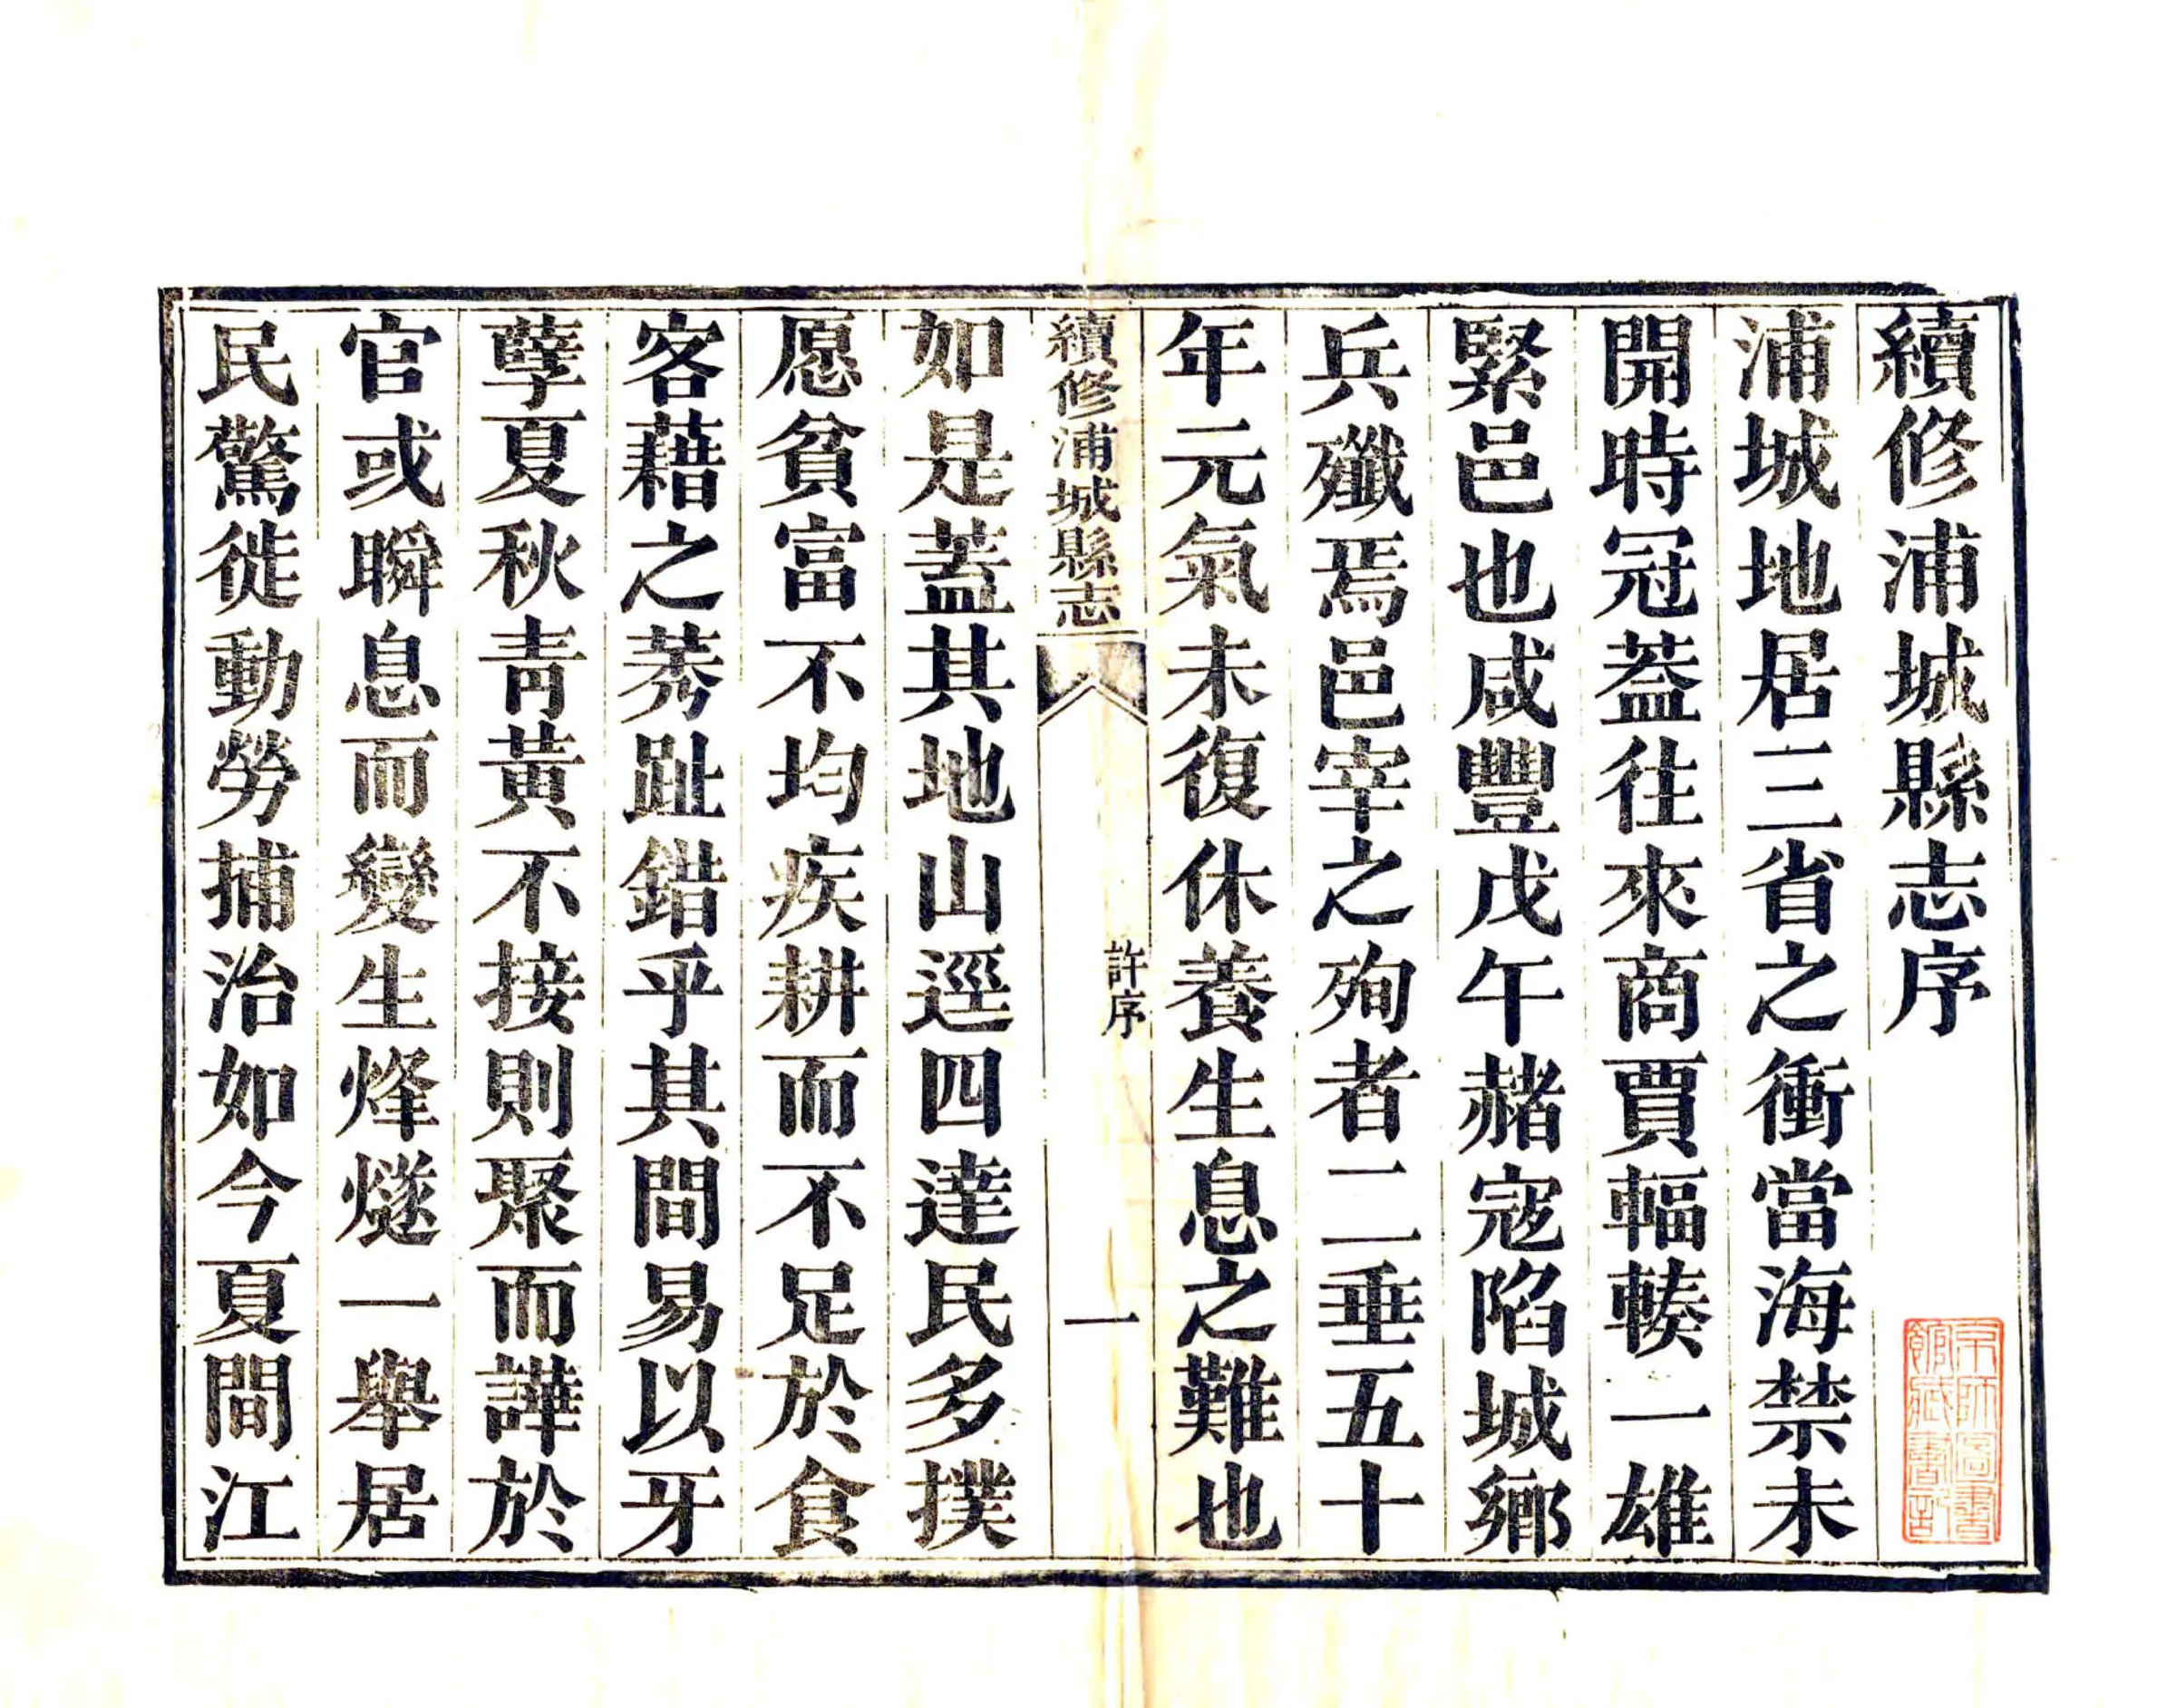 續修浦城縣志序
浦城地居三省之衝當海禁未
開時冠葢往來商賈輻輳一雄
緊邑也咸豐戊午赭寇陷城鄉
兵殲焉邑宰之殉者二垂五十
年元氣未復休養生息之難也
續修浦城縣志
許序
一
如是蓋其地山逕四達民多撲
愿貧富不均疾耕而不足於食
客藉之莠趾錯乎其間易以牙
孽夏秋青黃不接則聚而譁於
官或瞬息而變生烽燧一舉居
民驚徙動勞捕治如今夏間江
京師圖書
館藏書記